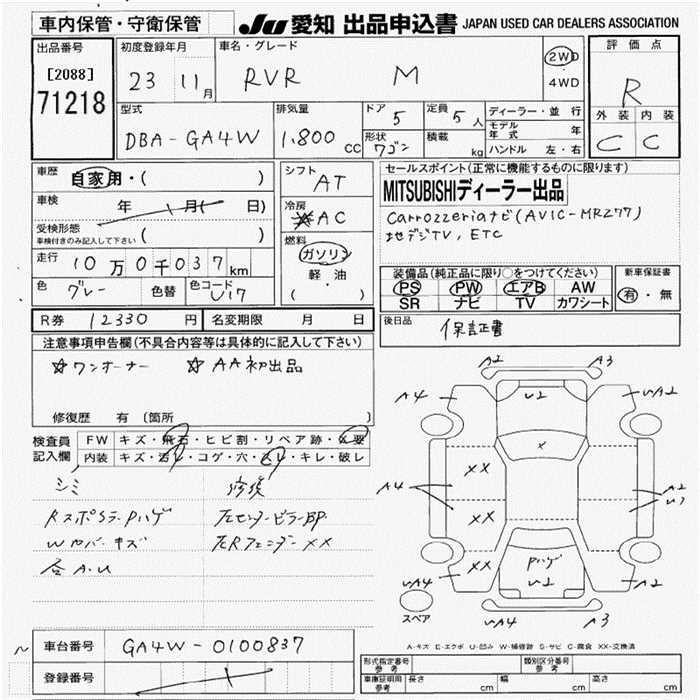 車内保管・守衛保管
JU 愛知 出品申込書 JAPAN USED CAR DEALERS ASSOCIATION
出品番号
[2088]
71218
初度登録年月
23 11月
車名・グレード
RVR M
2WD
4WD
評価点
R
外装 内装
C C
型式
DBA-GA4W
排気量
1,800 CC
ドア 5
定員 5人
形状 ワゴン
積載 kg
ディーラー・並行
モデル年式 年
ハンドル 左・右
車歴 自家用・( )
車検 年 月( 日)
受検形態
車検付きのみ記入して下さい ( )
走行 10万0千037km
色 グレー 色替 色コード U17
シフト AT
冷房 AC
燃料
ガソリン
軽・油
( )
セールスポイント(正常に機能するものに限ります)
MITSUBISHIディーラー出品
carrozzeriaナビ(AVIC-MRZ77)
地デジTV, ETC
装備品(純正品に限り○をつけてください)
PS PW エアB AW
SR ナビ TV カワシート
新車保証書
有・無
R券 12330円
名変期限 月 日
後日品 保証書
注意事項申告欄(不具合内容等は具体的に記入して下さい)
☆ワンオーナー ☆AA初出品
修復歴 有(箇所 )
検査員
記入欄
FW キズ・飛石・ヒビ割・リペア跡・×要
内装 キズ・汚レ・コゲ・穴・スレ・キレ・破レ
シミ 修復
RスポSラ-Pハゲ 左センターピラーBP
Wカバーキズ 左RフェンダーXX
各A.U
A2 A3
A4 U2 UA2
X
XX
A4 XX A2
U1
XX Pハゲ
UA4 U2 A2
スペア UA4 A3
A-キズ E-エクボ U-凹み W-補修跡 S-サビ C-腐食 XX-交換済
車台番号 GA4W-0100837
登録番号
形式指定番号 参考
類別区分番号 参考
車庫証明用 参考 長さ cm 幅 cm 高さ cm